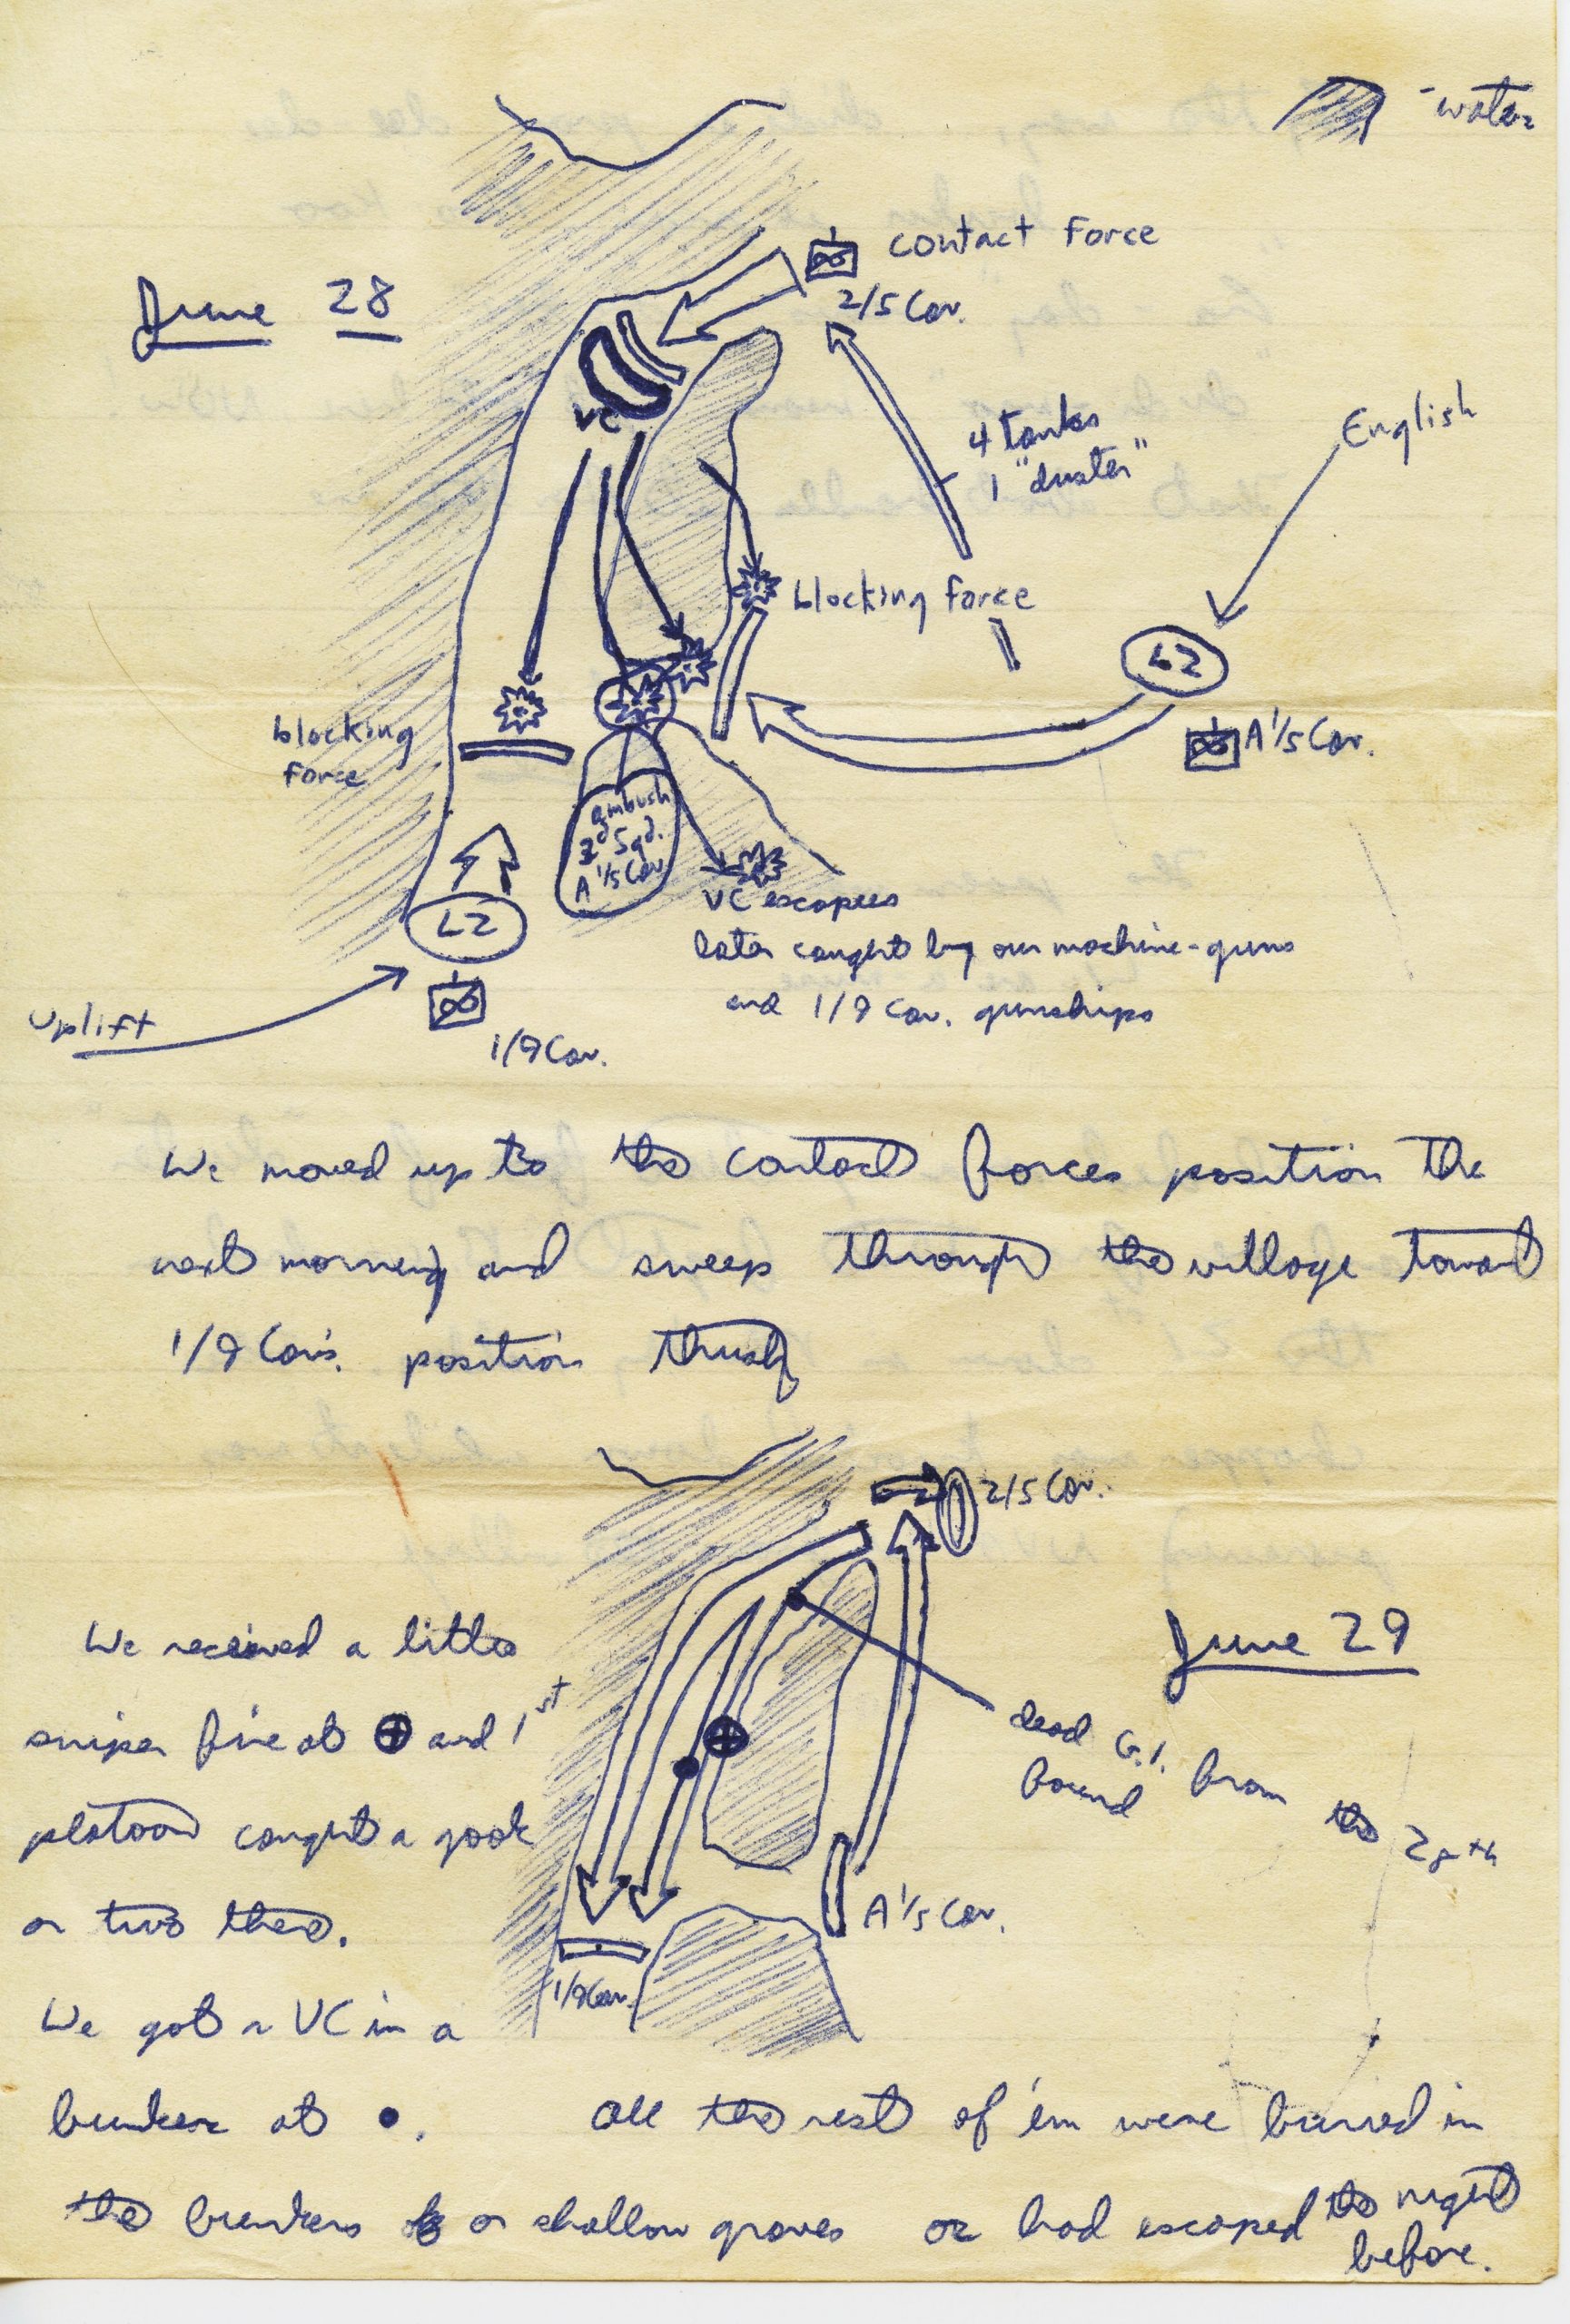 - water
contact force
2/5 Cav.
June 28
VC
4 tanks
1 "duster"
English
blocking force
LZ
A 1/5 Cav.
blocking
force
ambush
2d Sqd.
A 1/5 Cav
VC escapees
later caught by our machine-guns
and 1/9 Cav. gunships
LZ
Uplift
1/9 Cav.
We moved up to the contact forces position the
next morning and sweep through the village toward
1/9 Cav's. position thusly
2/5 Cav.
June 29
We received a little
sniper fire at ⊕ and 1st
platoon caught a gook
or two there.
dead G.I. from the 28th
found
A 1/5 Cav.
1/9 Cav.
We got a VC in a
bunker at •. All the rest of 'em were burried in
the bunkers or shallow graves or had escaped the night
before.